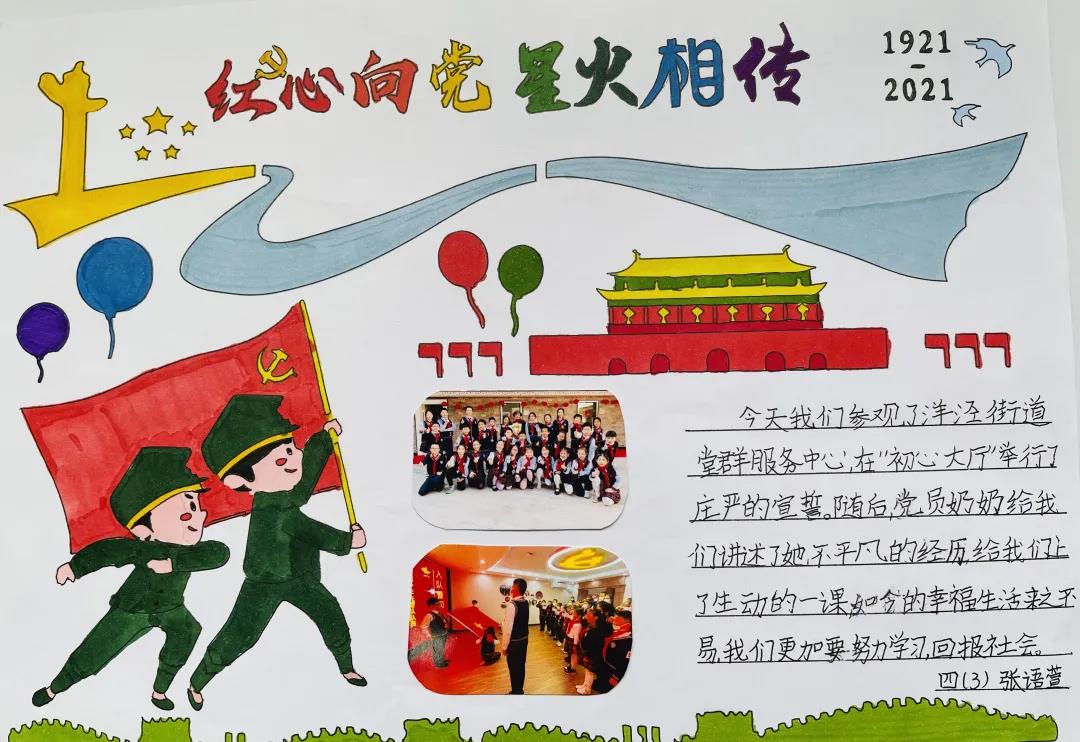 红心向党 星火相传
1921
-
2021
今天我们参观了洋泾街道
党群服务中心,在"初心大厅"举行了
庄严的宣誓。随后,党员奶奶给我
们讲述了她不平凡的经历,给我们上
了生动的一课,如今的幸福生活来之不
易,我们更加要努力学习,回报社会。
四(3) 张语萱